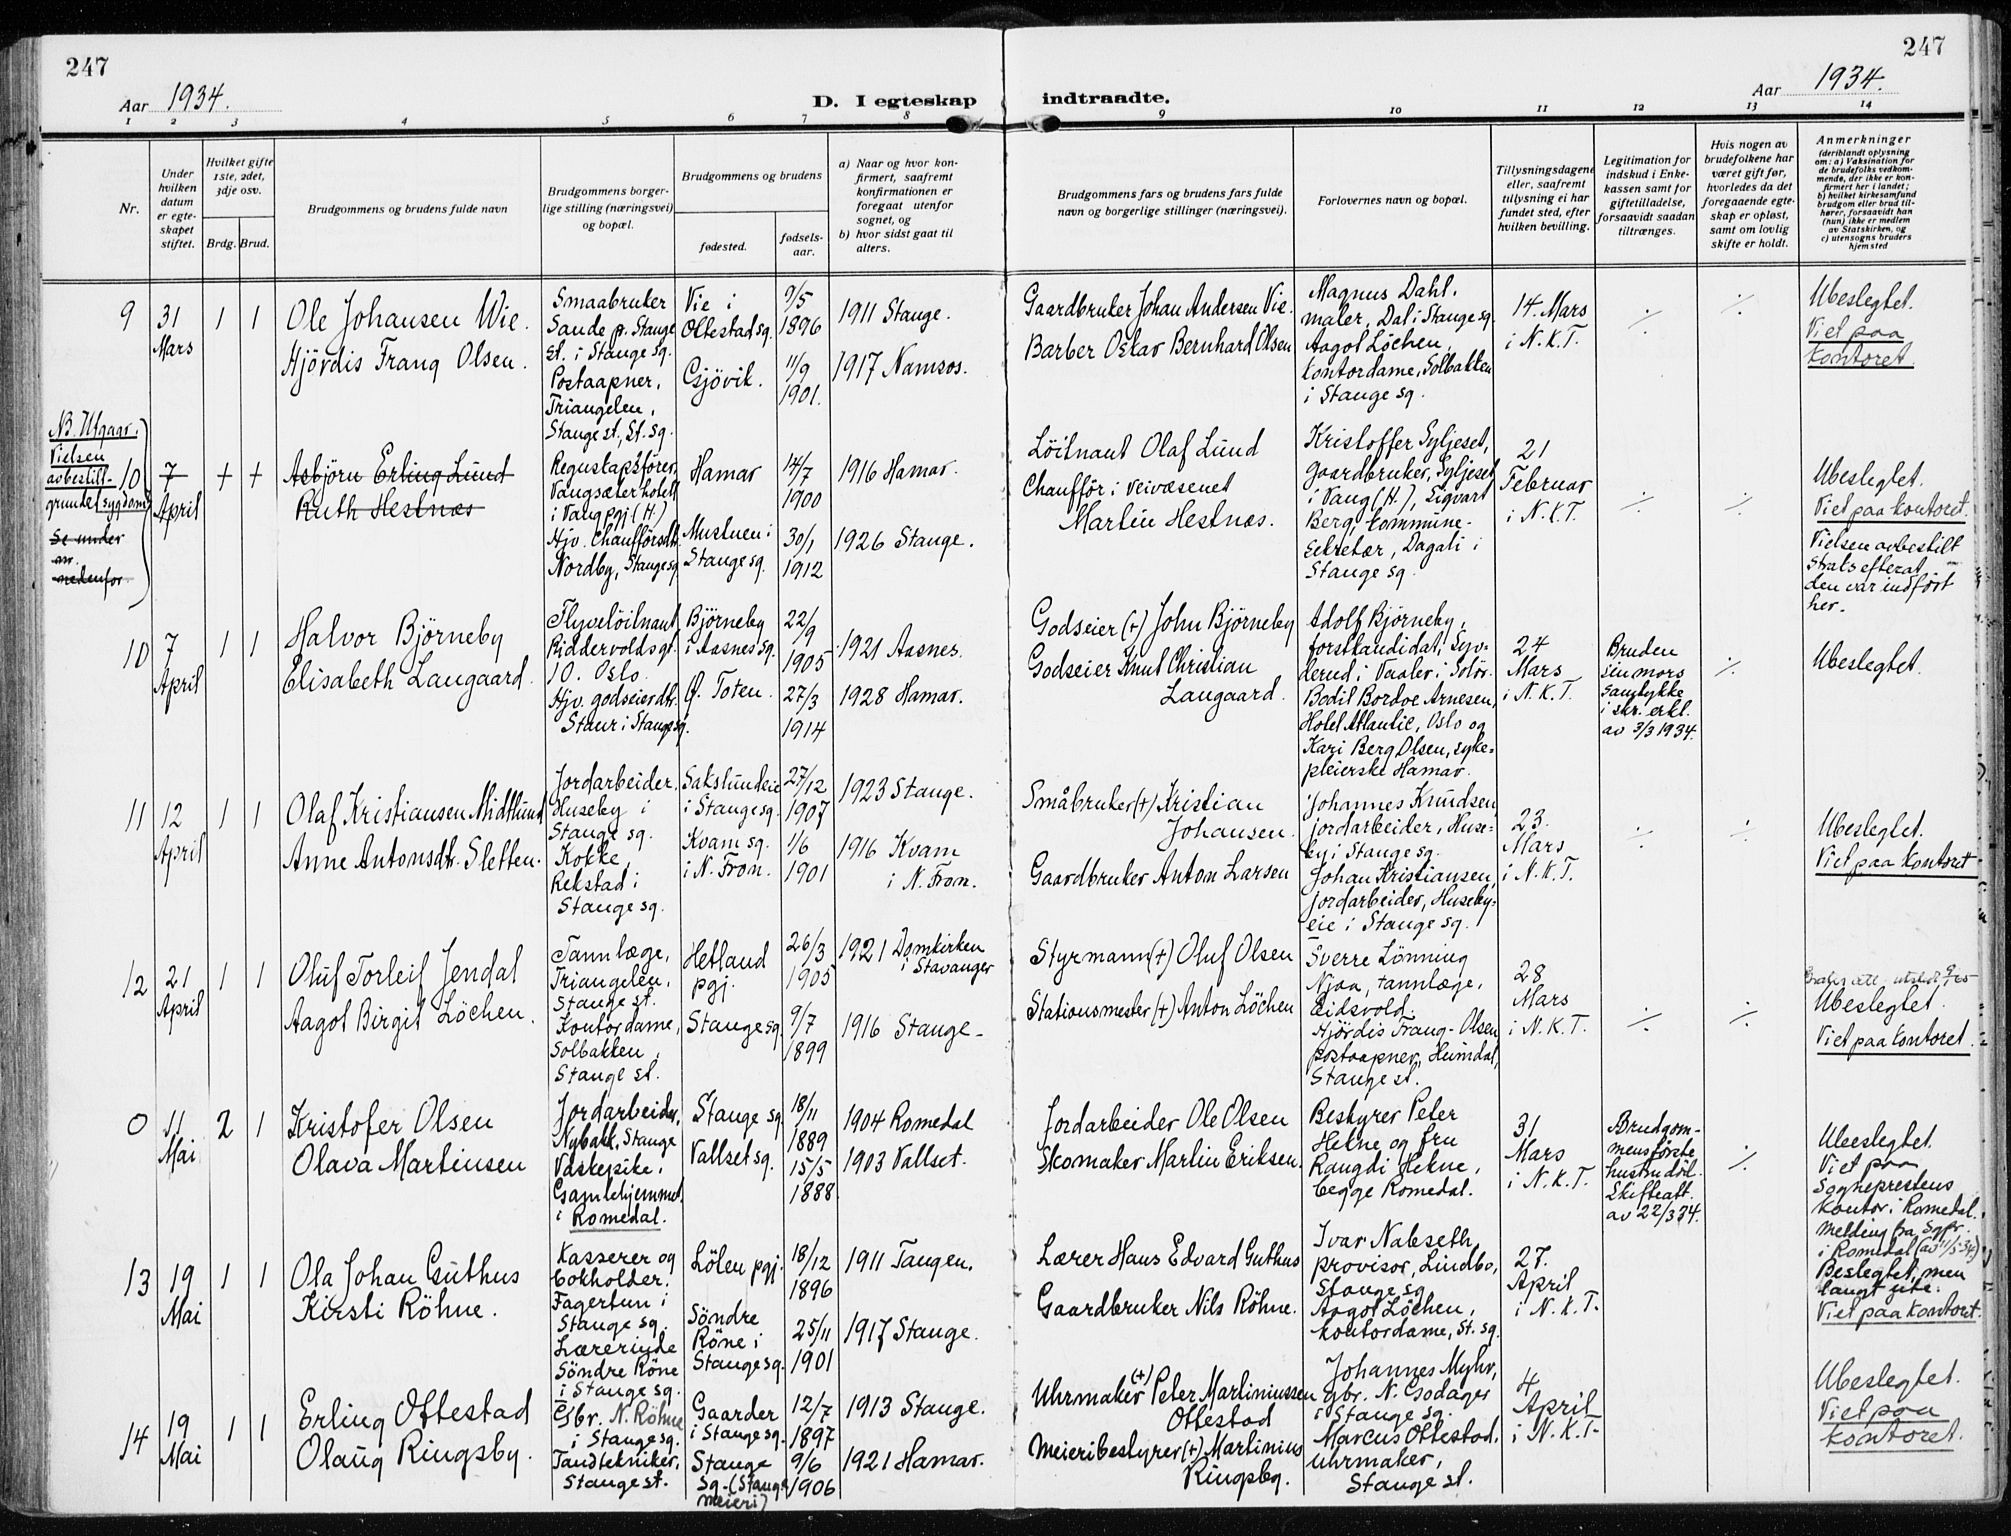 247
247
Aar 1934.
D. I egteskap
indtraadte.
Aar 1934.
1 2 3 4 5 6 7 8 9 10 11 12 13 14
Nr.
Under hvilken datum er egte-skapet stiftet.
Hvilket gifte 1ste, 2det, 3dje osv.
Brdg. Brud.
Brudgommens og brudens fulde navn
Brudgommens borger-lige stilling (næringsvei) og bopæl.
Brudgommens og brudens
fødested.
fødsels-aar.
a) Naar og hvor kon-firmert, saafremt konfirmationen er foregaat utenfor sognet, og
b) hvor sidst gaat til alters.
Brudgommens fars og brudens fars fulde navn og borgerlige stillinger (næringsvei).
Forlovernes navn og bopæl.
Tillysningsdagene eller, saafremt tillysning ei har fundet sted, efter hvilken bevilling.
Legitimation for indskud i Enke-kassen samt for giftetilladelse, forsaavidt saadan tiltrænges.
Hvis nogen av brudefolkene har været gift før, hvorledes da det foregaaende egte-skap er opløst, samt om lovlig skifte er holdt.
Anmerkninger
(deriblandt oplysning om: a) Vaksination for de brudefolks vedkom-mende, der ikke er kon-firmert her i landet; b) hvilket kirkesamfund brudgom eller brud til-hører, forsaavidt han (hun) ikke er medlem av Statskirken, og c) utensogns bruders hjemsted
9
31
Mars
1 1
Ole Johansen Wie.
Hjördis Frang Olsen.
Smaabruker
Sande p. Stange
st. i Stange sg.
Postaapner,
Triangelen,
Stange st., St. sg.
Vie i
Ottestad sg.
Gjövik.
9/5
1896
11/9
1901.
1911 Stange.
1917 Namsos.
Gaardbruker Johan Andersen Vie.
Barber Oskar Bernhard Olsen
Magnus Dahl,
maler, Dal i Stange sg.
Aagot Löchen,
kontordame, Solbakken
i Stange sg.
14. Mars
i N.K.T.
⁒
⁒
Ubeslegtet.
Viet paa
kontoret.
NB. Utgaar.
Vielsen
avbestilt
grundet sygdom
Se under
nr.
nedenfor.
10
7
April
+ +
Asbjörn Erling Lund
Ruth Hestnæs
Regnskapsförer,
Vangsæter hotell
i Vang pgj (H.)
Hjv. chaufförsdtr.
Nordby, Stange sg
Hamar
Mustuen i
Stange sg.
14/7
1900
30/1
1912
1916 Hamar.
1926 Stange.
Löitnant Olaf Lund
Chaufför i veivæsenet
Martin Hestnæs.
Kristoffer Syljeset,
gaardbruker, Syljeset
i Vang (H.), Sigvart
Berg, kommune-
sekretær, Dagali i
Stange sg.
21
Februar
i N.K.T.
⁒
⁒
Ubeslegtet.
Viet paa kontoret.
Vielsen avbestilt
straks efterat
den var indført
her.
10
7
April
1 1
Halvor Björneby
Elisabeth Langaard.
Flyvelöitnant,
Riddervoldsgt.
10. Oslo.
Hjv. godseierdtr.
Staur i Stange sg.
Björneby
i Aasnes sg.
Ø. Toten.
22/9
1905
27/3
1914
1921 Aasnes.
1928 Hamar.
Godseier (+) John Björneby
Godseier Knut Christian
Langaard.
Adolf Bjørneby,
forstkandidat, Syv-
derud i Vaaler i Solör.
Bodil Bordoe Arnesen,
Hotel Atlantic, Oslo og
Kari Berg Olsen, syke-
pleierske Hamar.
24
Mars
i N.K.T.
Bruden
sin mors
samtykke
i skr. erkl.
av 3/3 1934.
⁒
Ubeslegtet.
11
12
April
1 1
Olaf Kristiansen Midtlund
Anne Antonsdtr. Sletten.
Jordarbeider,
Huseby i
Stange sg.
Kokke,
Rekstad i
Stange sg.
Sakslundeie
i Stange sg.
Kvam sg.
i N. Fron.
27/12
1907
1/6
1901
1923 Stange.
1916 Kvam
i N. Fron.
Småbruker (+) Kristian
Johansen.
Gaardbruker Anton Larsen
Johannes Knudsen,
jordarbeider, Huse-
by i Stange sg.
Johan Kristiansen,
jordarbeider, Huseby-
eie i Stange sg.
23.
Mars
i N.K.T.
⁒
⁒
Ubeslegtet.
Viet paa kontoret
12
21
April
1 1
Oluf Torleif Jendal
Aagot Birgit Löchen.
Tannlæge,
Triangelen,
Stange st.
Kontordame,
Solbakken,
Stange st.
Hetland
pgj.
Stange sg.
26/3
1905
9/7
1899
1921 Domkirken
i Stavanger
1916 Stange.
Styrmann (+) Oluf Olsen
Stationsmester (+) Anton Löchen
Sverre Lönning
Njaa, tannlæge,
Eidsvold.
Hjördis Frang-Olsen,
postaapner, Heimdal,
Stange st.
28
Mars
i N.K.T.
⁒
⁒
Ubeslegtet.
Viet paa kontoret.
0
11
Mai
2 1
Kristofer Olsen
Olava Martinsen
Jordarbeider,
Nybakk, Stange
Vaskepike,
Gamlehjemmet
i Romedal.
Stange sg.
Vallset sg.
18/11
1889
15/5
1888.
1904 Romedal
1903 Vallset.
Jordarbeider Ole Olsen
Skomaker Martin Eriksen.
Bestyrer Peter
Hekne og fru
Rangdi Hekne,
begge Romedal.
31
Mars
i N.K.T.
Brudgom-
mens første
hustru död.
Skifteatt.
av 22/3 34.
⁒
Ubeslegtet.
Viet paa
Sogneprestens
kontor i Romedal.
Melding fra Sgpr.
i Romedal (av 11/5-34)
13
19
Mai
1 1
Ola Johan Guthus
Kirsti Röhne.
Kasserer og
bokholder,
Fagertun i
Stange sg.
Lærerinde
Söndre Röne
i Stange sg.
Löten pgj.
Söndre
Röne i
Stange sg.
18/12
1896
25/11
1901
1911 Tangen.
1917 Stange.
Lærer Hans Edvard Guthus
Gaardbruker Nils Röhne.
Ivar Nabseth,
provisor, Lindbo,
Stange sg
Aagot Löchen,
kontordame, St. sg.
27.
April
i N.K.T.
Beslegtet, men
langt ute.
Viet paa kontoret.
14
19
Mai
1 1
Erling Ottestad
Olaug Ringsby.
Gbr. N. Röhne
i Stange sg.
Tandtekniker,
Stange st.
Gaarder
i Stange sg.
Stange
sg. (Stange
meieri)
12/7
1897
9/6
1906
1913 Stange.
1921 Hamar.
Uhrmaker (+) Peter Martiniussen
Ottestad
Meieribestyrer (+) Martinius
Ringsby.
Johannes Myhr,
gbr. N. Godager
i Stange sg.
Marcus Ottestad,
uhrmaker,
Stange st.
4
April
i N.K.T.
Ubeslegtet.
Viet paa
kontoret.